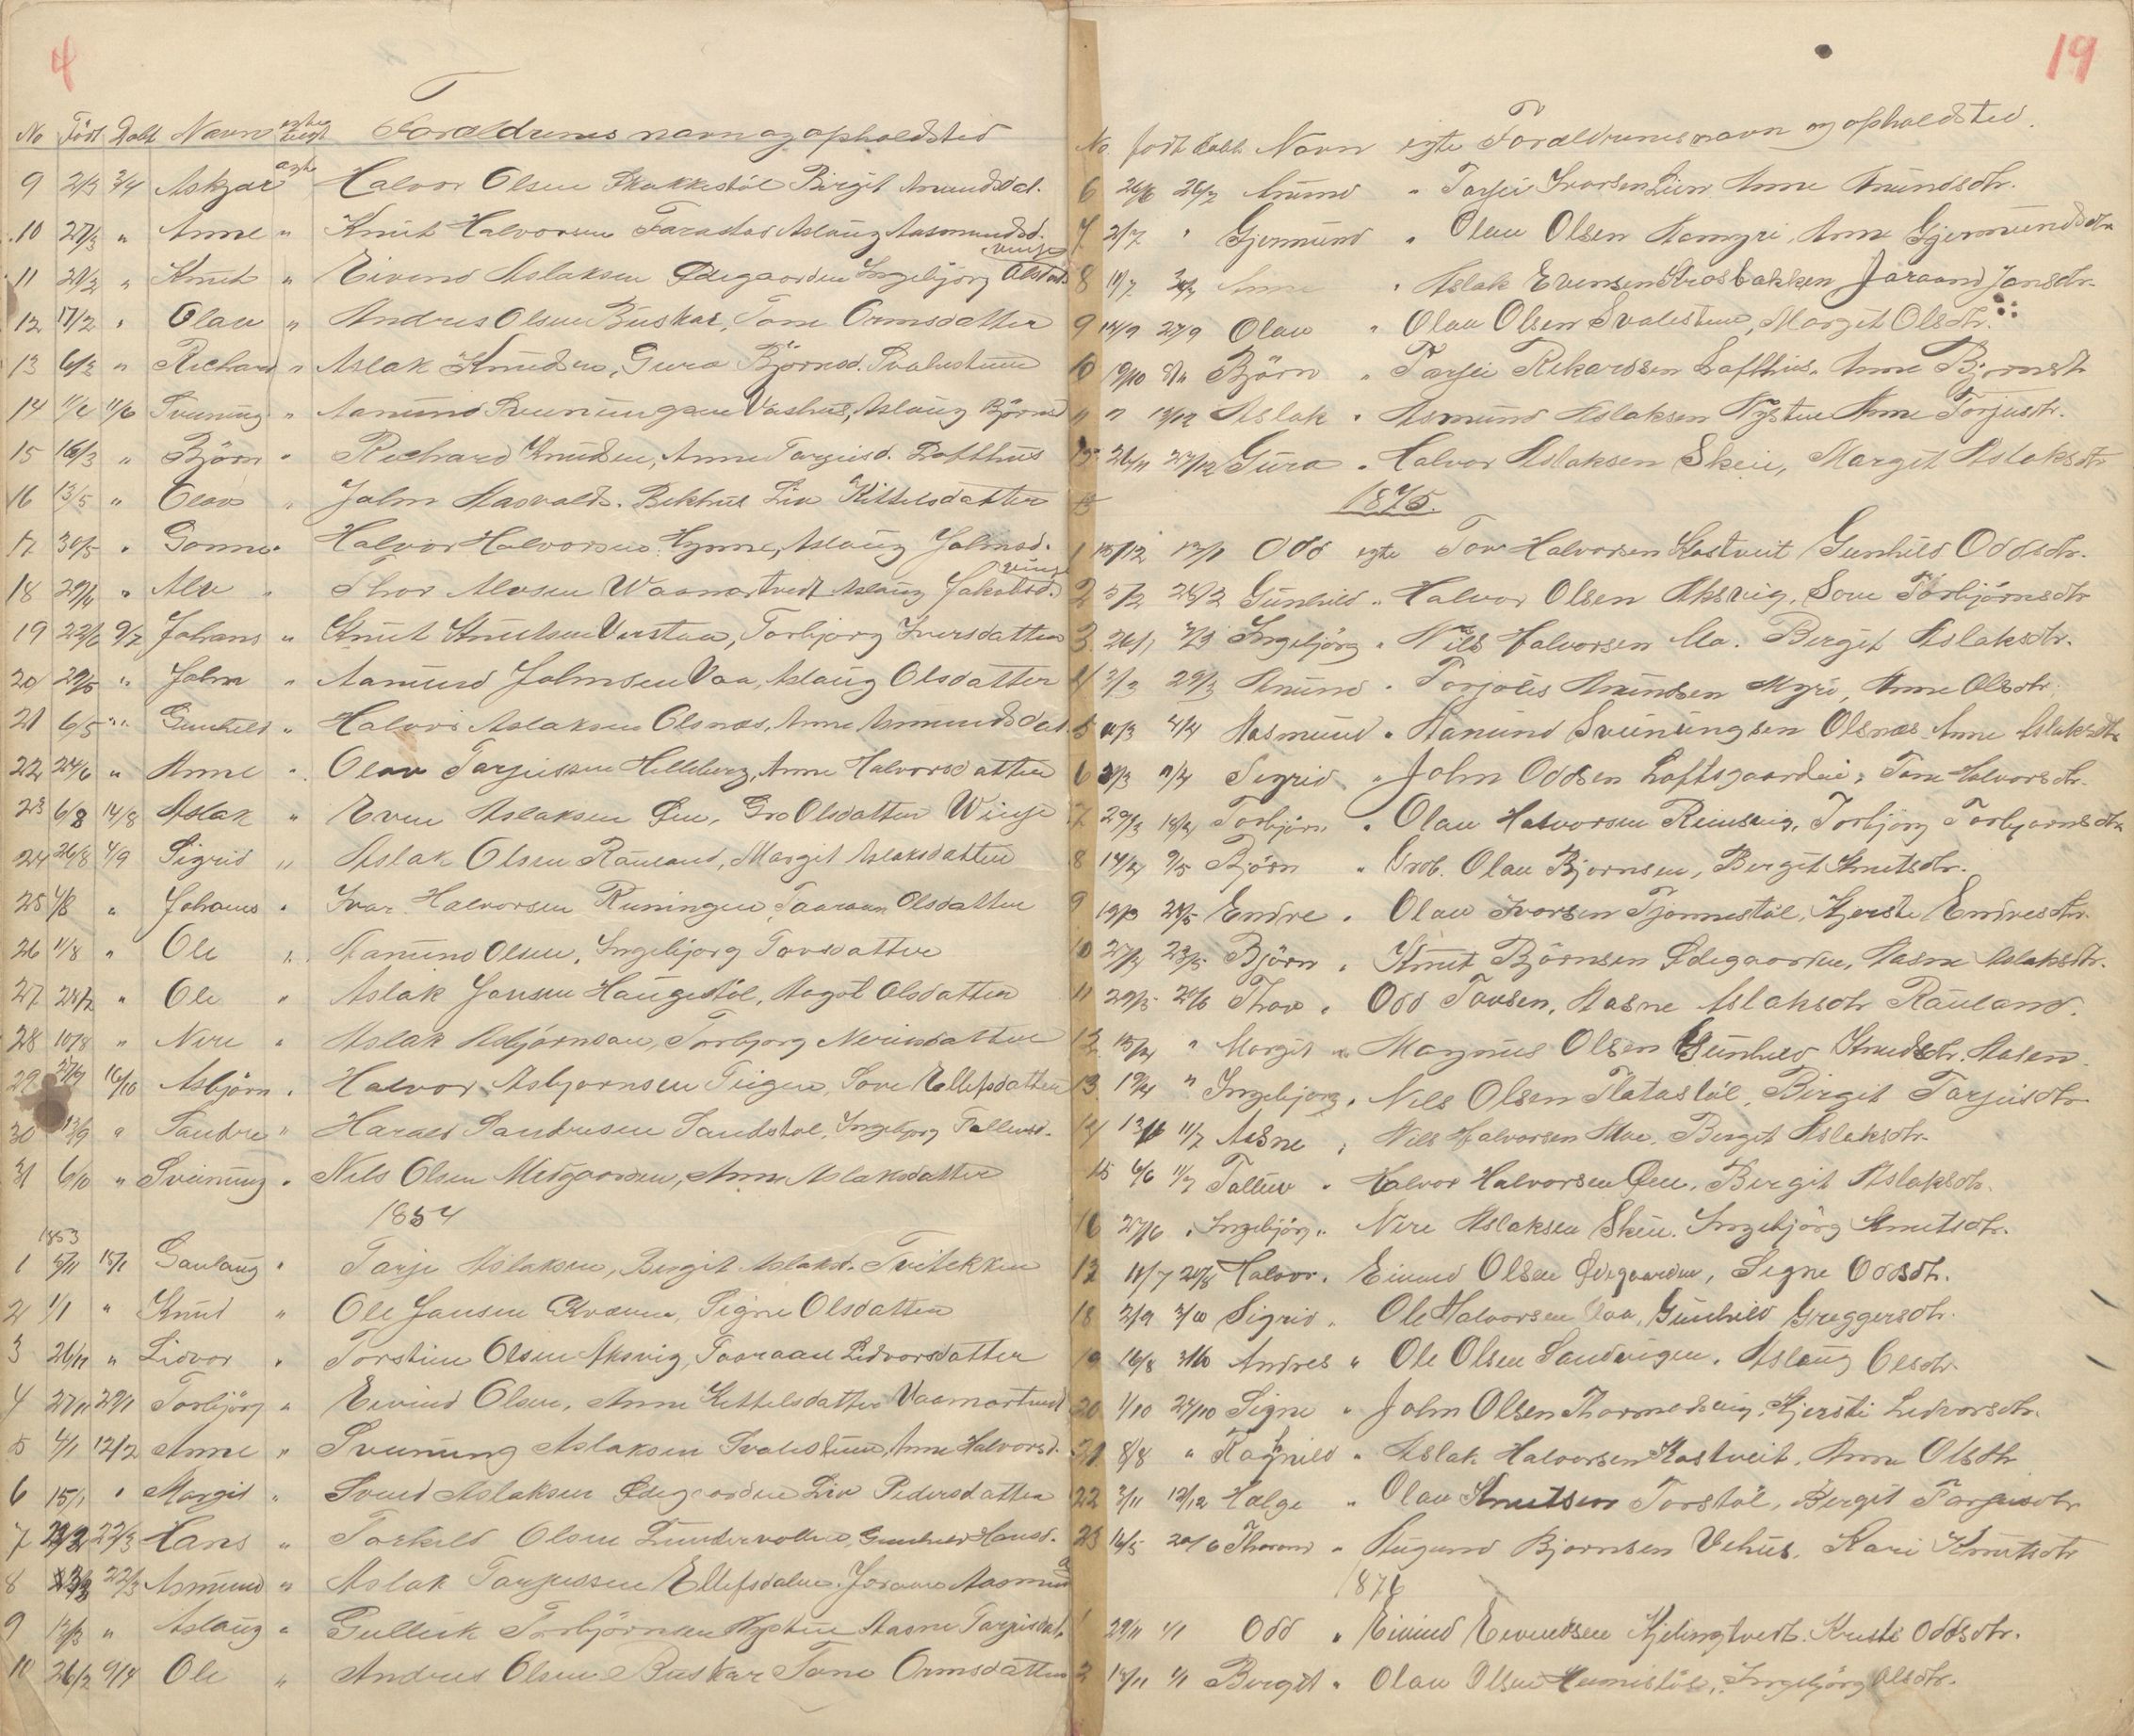 4
No Født Døbt Navn Foraldrenes navn og opholdsted
9 2/3 3/4 Askjær ægte Halvor Olsen Birgit Amundsd.
10 27/3 " Anne " Knut Halvorsen Aslaug Aasmundsd.
11 21/2 " Knut " Eivend Aslaksen Ødegaarden Ingebjorg Olsd. Vinje
12 17/2 " Olav " Andres Olsen Buskar, Tone Ormsdatter
13 6/3 " Richard " Aslak Knudsen, Gura Björnsd. Svalestuen
14 11/6 Sveinung " Aamund Sveinungsen Vashus, Aslaug Björnsd
15 16/3 " Björn " Richard Knudsen, Anne Tarjeisd. Lofthus
16 13/5 " Olav " John Aasvalds. Bekhus Liv Kittelsdatter
17 30/5 " Halvor Halvorsen Aslaug Johnsd.
18 29/4 " Alv " Thor Alvsen Vaamartvedt Aslaug Jakobsd. Vinje
19 22/6 9/7 Johans " Knut Knutsen Verstaa, Torbjorg Iversdatter
20 29/5 " John " Aamund Johnsen Vaa, Aslaug Olsdatter
21 6/5 " Gunhild " Halvor Aslaksen Olsnæs, Anne Amundsdat.
22 24/6 " Anne " Olav Tarjeissen Helleberg, Anne Halvorsdatter
23 6/8 14/8 Aslak " Even Aslaksen Øen, Gro Olsdatter Winje
24 26/8 4/9 Sigrid " Aslak Olsen Rauland, Margit Aslaksdatter
25 4/8 " Johans " Ivar Halvorsen Runingen Taaraan Olsdatter
26 11/8 " Ole " Aamund Olsen, Ingebjorg Tovsdatter
27 24/2 " Ole " Aslak Jansen Haugestöl, Aagot Olsdatter
28 10/8 " Neri " Aslak Asbjörnsen, Torbjorg Nerisdatter
29 27/9 16/10 Asbjörn " Halvor Asbjornsen Teigen, Sove Ellefsdatter
30 13/9 " Sandre " Harald Sandresen Sandstöl, Ingebjorg Tallevsd.
31 6/10 " Sveinung " Nils Olsen Midgaarden, Anne Aslaksdatter
1854
1853
1 5/11 15/1 Gaulaug " Tarje Aslaksen, Bergit Aslaksd. Tveitekken
2 1/1 " Knud " Ole Jansen Kvæven, Signe Olsdatter
3 26/11 " Lidvor " Torstein Olsen Aksvig, Taaraan Lidvorsdatter
4 27/11 29/1 Torbjörg " Eivind Olsen, Anne Kittelsdatter Vaamartveit
5 4/1 12/2 Anne " Sveinung Aslaksen Svalestuen, Anne Halvorsd.
6 15/1 " Margit " Svend Aslaksen Ødegaarden Liv Pedersdatter
7 22/3 Hans " Torkild Olsen Gunhild Hansd.
8 22/3 Asmund " Aslak Tarjeissen Ellefsdalen. Joraand Aasmund
9 12/3 " Aslaug " Gullik Torbjörnsen Nystuen Aasne Tarjeisdat.
10 26/2 9/4 Ole " Andres Olsen Buskar Tone Ormsdatter
19
No. født døbt Navn egte Foraldrenes navn og opholdsted.
6 26/6 26/7 Amund " Tarjei Ivarsen Lien Anne Amundsdtr.
7 2/7 " Gjermund " Olav Olsen Aamyri, Anne Gjermundsdtr
8 11/7 Anne " Aslak Evensen Krosbakken Jaraand Jonsdtr.
9 14/9 27/9 Olav " Olav Olsen Svalestuen, Margit Olsdtr.
10 19/10 8/11 Björn " Tarjei Rikardsen Lofthus. Anne Bjornsdtr
11 " 13/12 Aslak " Asmund Aslaksen Nystuen Anne Torjusdtr.
26/11 27/12 Gura " Halvor Aslaksen Skeie, Margit Aslaksdtr
1875.
1 15/12 17/1 Odd egte Tov Halvorsen Kostveit Gunhild Oddsdtr.
2 5/2 26/2 Gunhild " Halvor Olsen Aksvig, Sove Torbjörnsdtr
3 26/1 7/3 Ingebjörg " Nils Halvorsen Moa. Bergit Aslaksdtr.
4 2/3 29/3 Amund " Torjeis Amundsen Myri, Anne Olsdtr.
5 11/3 4/4 Aasmund " Aamund Sveinungsen Olsnæs Anne Aslaksdtr
6 3/3 11/4 Sigrid " John Oddsen Loftsgaarden, Tone Halvorsdtr.
7 29/3 18/4 Torbjörn " Olav Halvorsen Reinsvig, Torbjörg Torbjornsdtr
8 14/4 9/5 Björn " Grob. Olav Bjornsen, Bergit Knutsdtr.
9 19/3 24/5 Endre " Olav Ivorsen Tjonnestöl, Kjerste Endresdtr.
10 27/4 23/5 Björn " Knut Björnsen Ødegaarden, Aasne Aslaksdtr.
11 29/5 20/6 Thov " Odd Tovsen, Aasne Aslaksdtr Rauland.
12 15/4 " Margit " Magnus Olsen Gunhild Knudsdtr. Aasen
13 19/4 " Ingebjorg " Nils Olsen Flatastöl, Birgit Tarjeisdtr
14 13/6 11/7 Aasne " Nils Halvorsen Moe. Bergit Aslaksdtr.
15 6/6 11/7 Tallev " Halvor Halvorsen Øen, Bergit Aslaksdtr.
16 27/6 " Ingebjörg " Neri Aslaksen Skeie. Ingebjörg Knutsdtr.
17 11/7 20/8 Halvor " Eivind Olsen Ødegaarden, Signe Oddsdtr.
18 2/9 3/10 Sigrid " Ole Halvorsen Vaa, Gunhild Greggersdtr.
19 16/8 3/10 Andres " Ole Olsen Sandvigen, Aslaug Olsdtr.
20 1/10 24/10 Signe " John Olsen Thormodsvig, Kjersti Ledvorsdtr.
21 8/8 " Ragnild " Aslak Halvorsen Kostveit. Anne Olsdtr
22 3/11 12/12 Hælge " Olav Knutsen Torstöl, Bergit Tarjeisdtr
23 16/5 20/6 Thorand " Augund Bjornsen Vehus. Kari Knutsdtr
1876
1 29/11 1/1 Odd " Eivind Eivindsen Kjelingtvedt. Kristi Oddsdtr.
2 14/11 1/1 Bergit " Olav Olsen Ingebjörg Olsdtr.